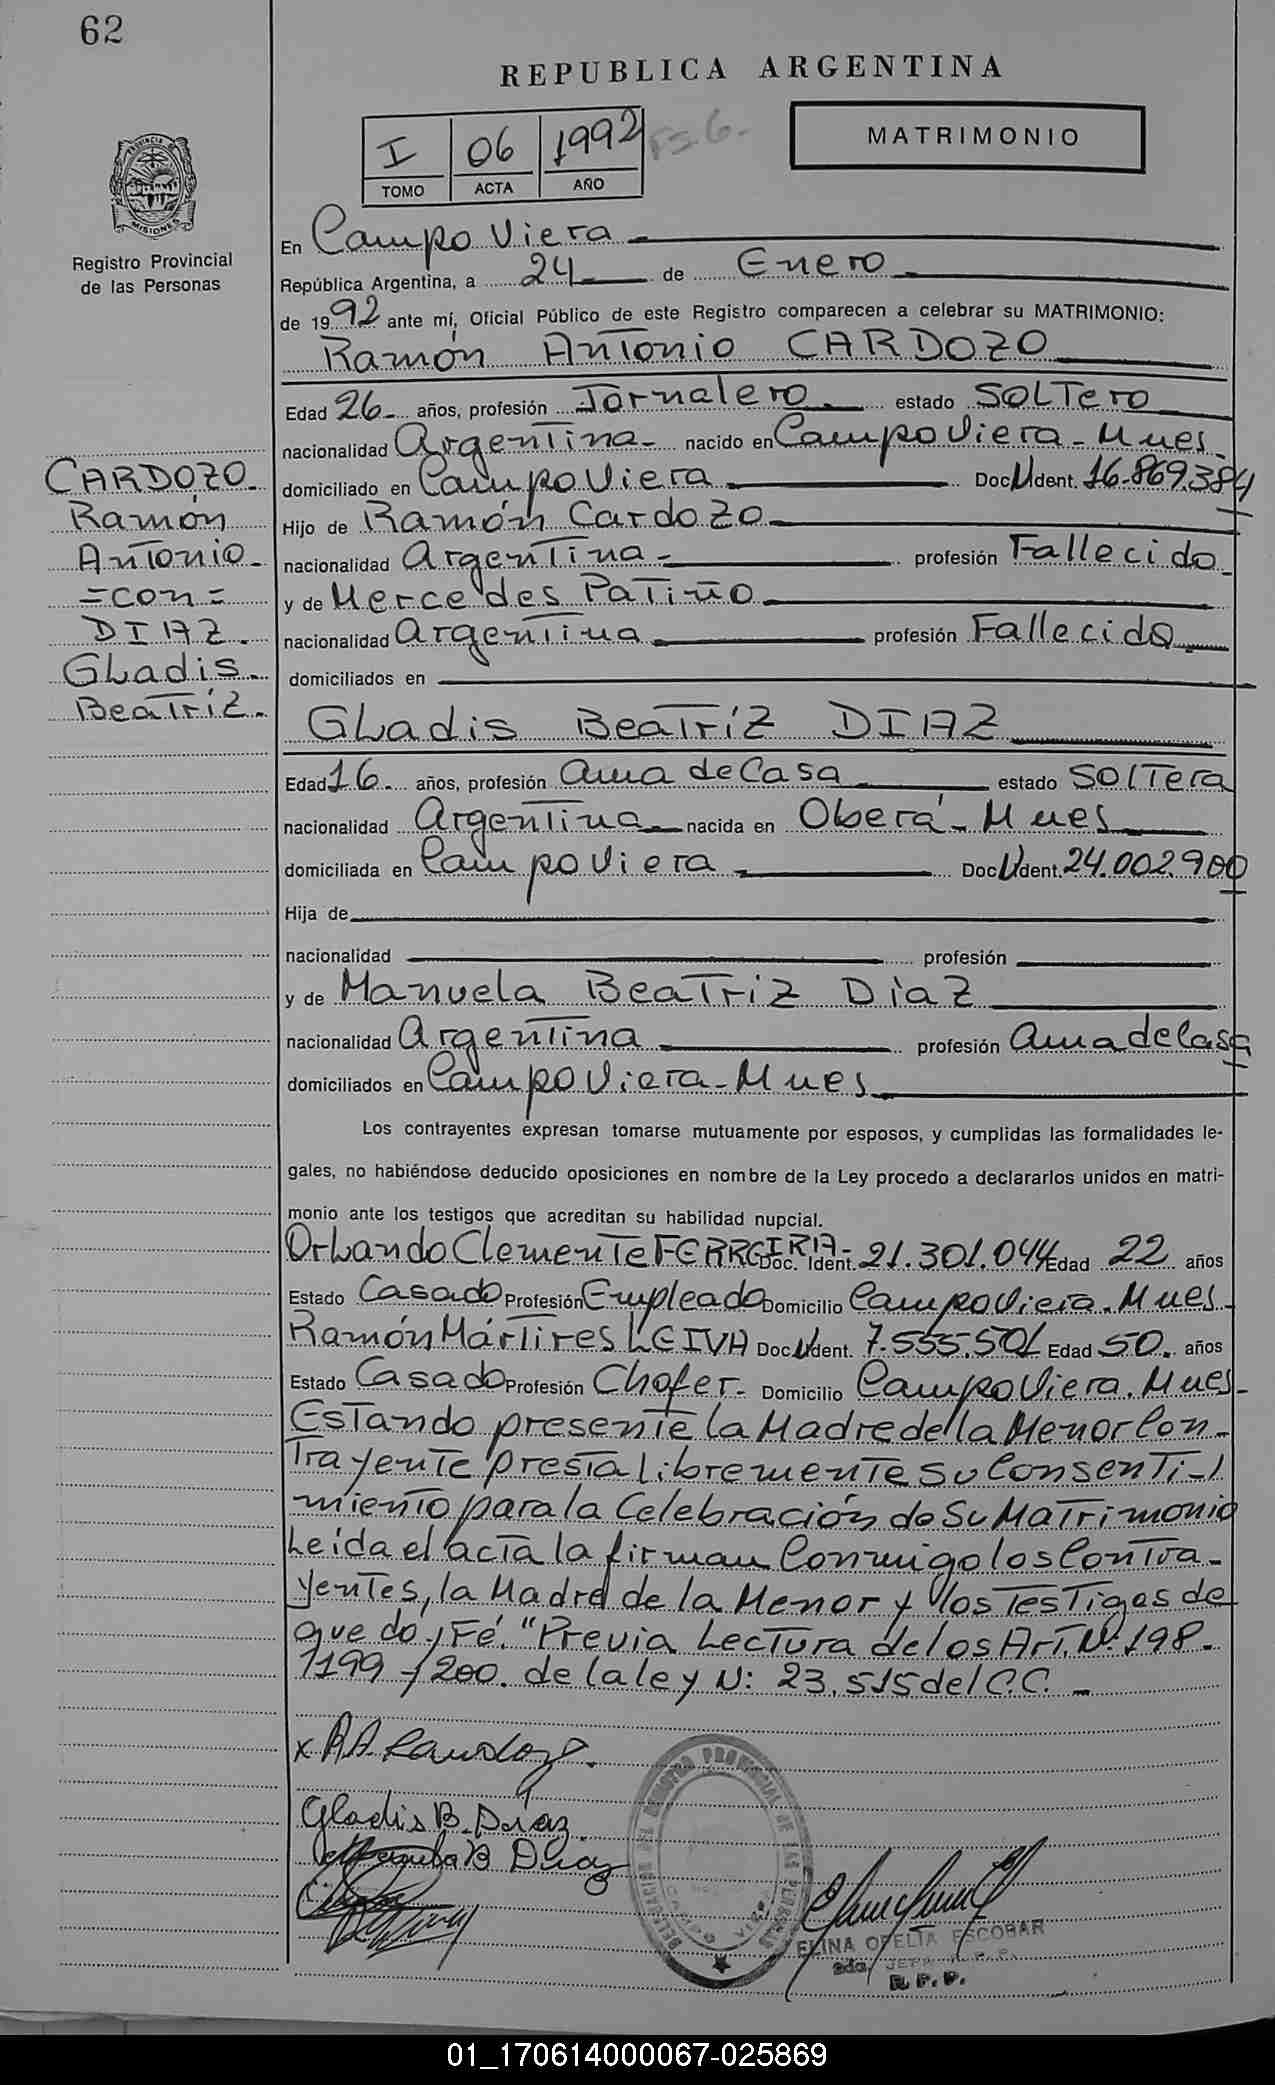 62
REPUBLICA ARGENTINA
I 06 1992 Fs 6.
TOMO ACTA AÑO
MATRIMONIO
PROVINCIA DE MISIONES
Registro Provincial
de las Personas
En Campo Viera
República Argentina, a 24 de Enero
de 1992 ante mí, Oficial Público de este Registro comparecen a celebrar su MATRIMONIO:
Ramón Antonio CARDOZO
Edad 26 años, profesión Jornalero estado Soltero
nacionalidad Argentina nacido en Campo Viera - Mnes
domiciliado en Campo Viera Doc. Ident. 16.869.384
Hijo de Ramón Cardozo
nacionalidad Argentina profesión Fallecido
y de Mercedes Patiño
nacionalidad Argentina profesión Fallecida
domiciliados en
CARDOZO
Ramón
Antonio
=con=
DIAZ
Gladis
Beatríz
Gladis Beatríz DIAZ
Edad 16 años, profesión Ama de Casa estado Soltera
nacionalidad Argentina nacida en Oberá - Mnes
domiciliada en Campo Viera Doc. Ident. 24.002.900
Hija de
nacionalidad profesión
y de Manuela Beatriz Diaz
nacionalidad Argentina profesión Ama de Casa
domiciliados en Campo Viera - Mnes
Los contrayentes expresan tomarse mutuamente por esposos, y cumplidas las formalidades le-
gales, no habiéndose deducido oposiciones en nombre de la Ley procedo a declararlos unidos en matri-
monio ante los testigos que acreditan su habilidad nupcial.
Orlando Clemente FERREIRA Doc. Ident. 21.301.044 Edad 22 años
Estado Casado Profesión Empleado Domicilio Campo Viera. Mnes
Ramón Mártires LEIVA Doc. Ident. 7.555.501 Edad 50. años
Estado Casado Profesión Chofer. Domicilio Campo Viera. Mnes
Estando presente la Madre de la Menor Con-
trayente presta libremente su Consenti-
miento para la Celebración de Su Matrimonio
Leída el acta la firman Conmigo los Contra-
yentes, la Madre de la Menor y los Testigos de
que doy Fé. "Previa Lectura de los Art. Nº 198-
1199-/200. de la ley N: 23.515 del C.C.
x R.A. Cardozo.
Gladis B. Diaz.
Manuela B Diaz
DELEGACION DEL REGISTRO PROVINCIAL DE LAS PERSONAS
CAMPO VIERA
ELINA OFELIA ESCOBAR
R.P.P.
01_170614000067-025869